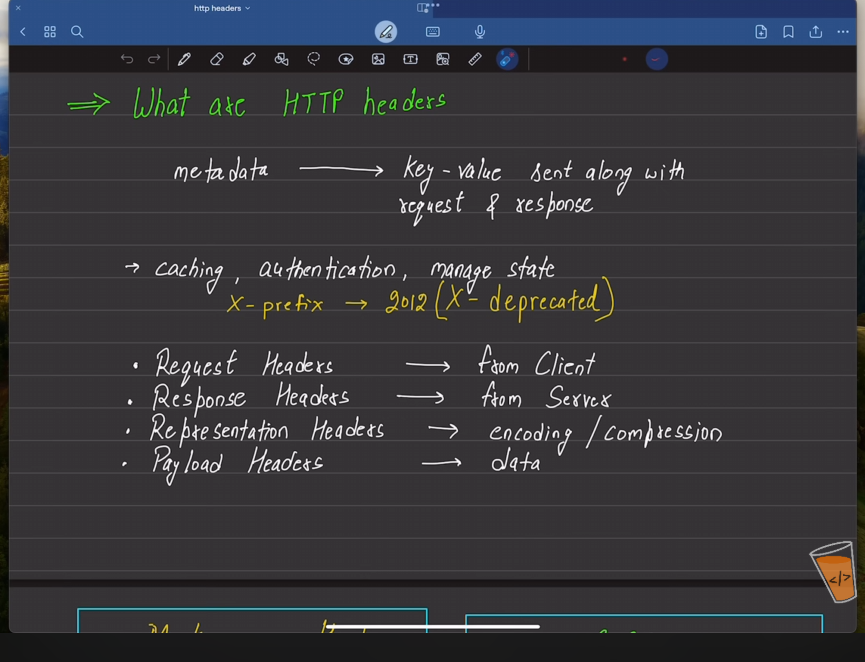 http headers
⇒ What are HTTP headers
metadata → Key-value sent along with
request & response
→ caching, authentication, manage state
X-prefix → 2012 (X- deprecated)
• Request Headers → from Client
• Response Headers → from Server
• Representation Headers → encoding / compression
• Payload Headers → data
</>